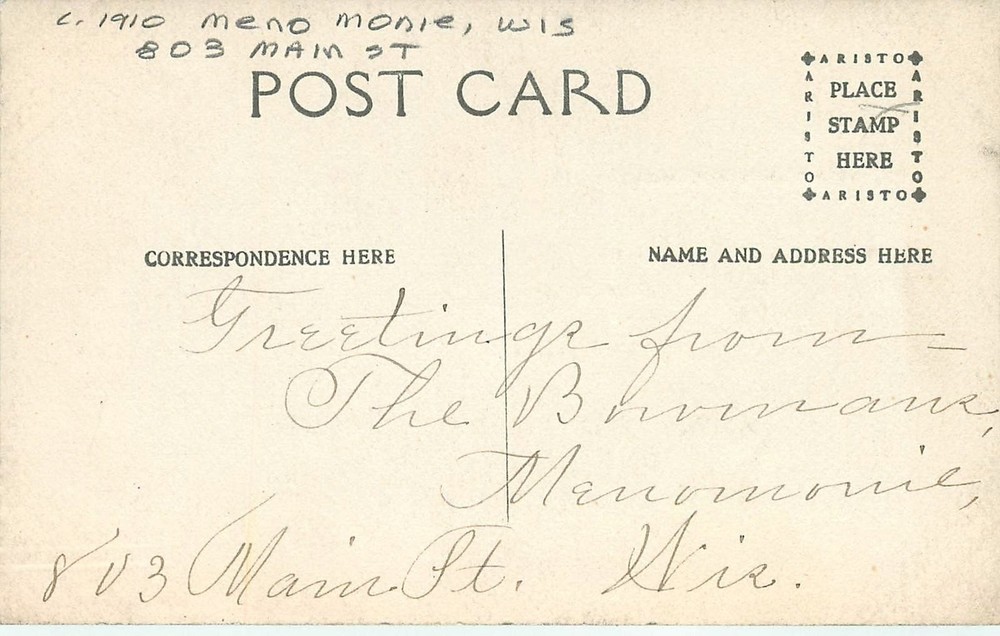 c. 1910 Meno monie, WIS
803 MAIN ST
POST CARD
ARISTO
ARISTO
PLACE
STAMP
HERE
ARISTO
ARISTO
CORRESPONDENCE HERE
NAME AND ADDRESS HERE
Greetings from
The Bowmans,
Menomonie,
803 Main St. Wis.